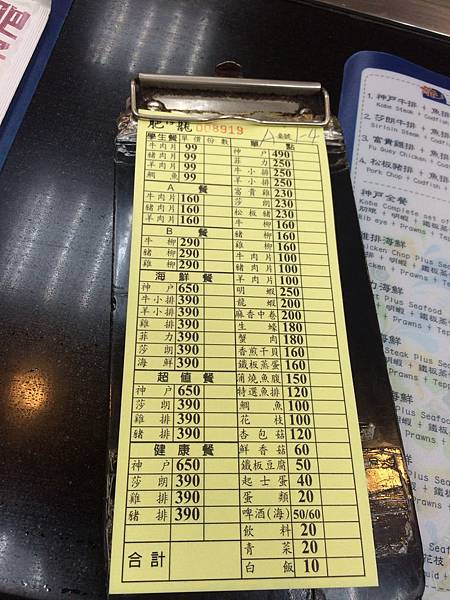 肥龍 008919 桌號 1-4
學生餐 單價 份數
牛肉片 99
豬肉片 99
羊肉片 99
鯛魚 99
A 餐
牛肉片 160
豬肉片 160
羊肉片 160
B 餐
牛柳 290
豬柳 290
雞柳 290
海鮮餐
神戶 650
牛小排 390
羊小排 390
雞排 390
菲力 390
莎朗 390
海鮮 390
超值餐
神戶 650
莎朗 390
雞排 390
豬排 390
健康餐
神戶 650
莎朗 390
雞排 390
豬排 390
合計
單點
神戶 490
菲力 250
牛小排 250
羊小排 250
富貴雞 230
莎朗 230
松板豬 230
牛柳 160
豬柳 160
雞柳 160
牛肉片 100
豬肉片 100
羊肉片 100
明蝦 250
龍蝦 200
麻香中卷 200
生蠔 180
蟹肉 180
香煎干貝 160
鐵板蒸蛋 160
蒲燒魚腹 150
特選魚排 120
鯛魚 100
花枝 100
杏包菇 120
鮮香菇 60
鐵板豆腐 50
起士蛋 40
蛋類 20
啤酒(海) 50/60
飲料 20
青菜 20
白飯 10
1. 神戶牛排 + 魚排
Kobe Steak + Codfish
2. 莎朗牛排 + 魚排
Sirloin Steak
3. 富貴雞 + 魚排
Fu Guey Chicken + Codfish
4. 松板豬排 + 魚排
Pork Chop + Codfish +
神戶全餐
Kobe Complete set of
+ Prawns + Tepp
雞排海鮮
Chicken Chop Plus Seafood
+ 明蝦 + 鐵板蒸
+ Prawns + Tepp
力海鮮
Plus Seafood
+ 明蝦 + 鐵板蒸
+ Prawns + Tepp
海鮮
Steak Plus Seafood